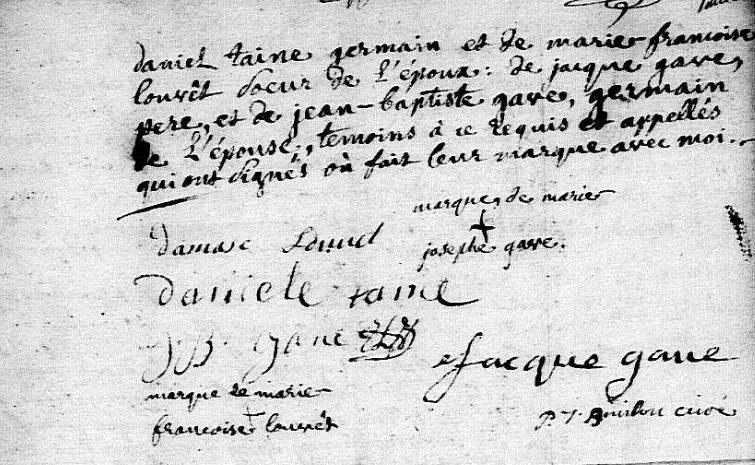 daniel taine germain et de marie-francoise
lourêt soeur de L'époux: de jacque gave,
pere, et de jean-baptiste gave, germain
de L'épouse, temoins à ce requis et appellés
qui ont signés où fait leur marque avec moi.
marque de marie
josephe gave.
damas
daniele taine
J. B. gave
Jacque gave
marque de marie
francoise lourêt
curé